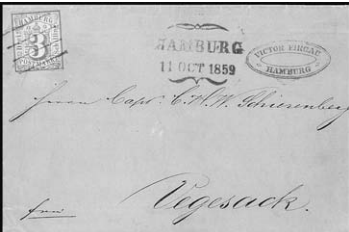 HAMBURG
3
HAMBURG
11 OCT 1859
VICTOR
HAMBURG
Herrn Capt. C. H. W. Schierenberg
Vegesack.
frei